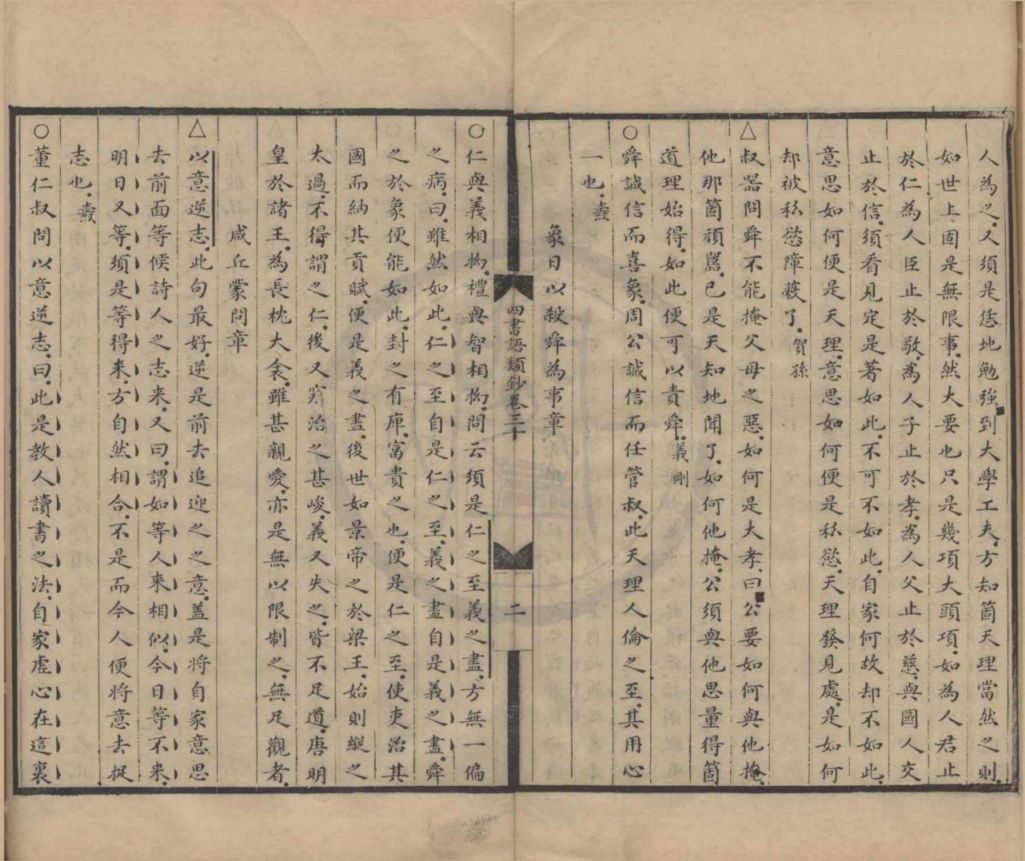 人為之。又須是恁地勉強。到大學工夫。方知箇天理當然之則。
如世上固是無限事。然大要也只是幾項大頭項。如為人君止
於仁。為人臣止於敬。為人子止於孝。為人父止於慈。與國人交
止於信。須看見定是著如此。不可不如此。自家何故却不如此。
意思如何便是天理。意思如何便是私慾。天理發見處。是如何
却被私慾障蔽了。賀孫
△叔器問舜不能掩父母之惡。如何是大孝。曰。公要如何與他掩。
他那箇頑嚚。已是天知地聞了。如何他掩。公須與他思量得箇
道理始得。如此便可以責舜。義剛
象日以殺舜為事章
○舜誠信而喜象。周公誠信而任管叔。此天理人倫之至。其用心
一也。燾
四書語類鈔卷三十
二
○仁與義相拗。禮與智相拗。問云須是仁之至義之盡。方無一偏
之病。曰。雖然如此。仁之至自是仁之至。義之盡自是義之盡。舜
之於象便能如此。封之有庳。富貴之也。便是仁之至。使吏治其
國而納其貢賦。便是義之盡。後世如景帝之於梁王。始則縱之
太過。不得謂之仁。後又窘治之甚峻。義又失之。皆不足道。唐明
皇於諸王。為長枕大衾。雖甚親愛。亦是無以限制之。無足觀者。
咸丘蒙問章
△以意逆志。此句最好。逆是前去追迎之之意。蓋是將自家意思
去前面等候詩人之志來。又曰。謂如等人來相似。今日等不來。
明日又等。須是等得來。方自然相合。不是而今人便將意去捉
志也。燾
○董仁叔問以意逆志。曰。此是教人讀書之法。自家虛心在這裏